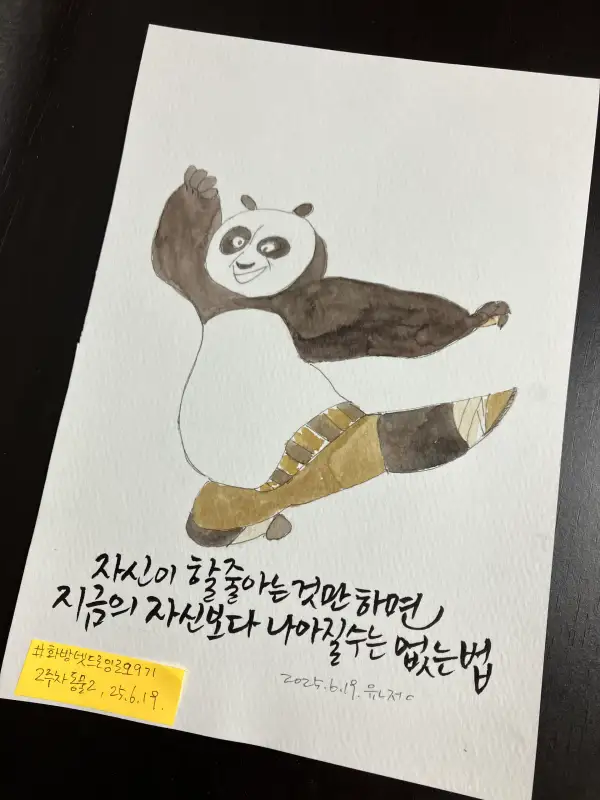 자신이 할줄아는것만하면
지금의 자신보다 나아질수는 없는법
2025.6.19. 유나저
#화방넷드로잉로오9기
2주차동물2, 25.6.19.